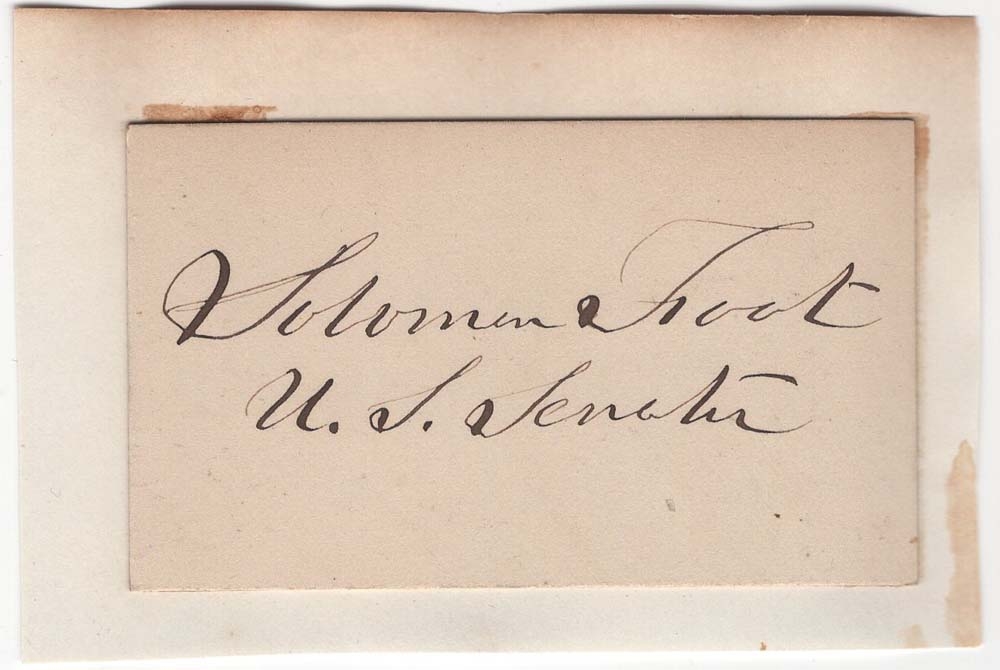 Solomon Foot
U. S. Senator